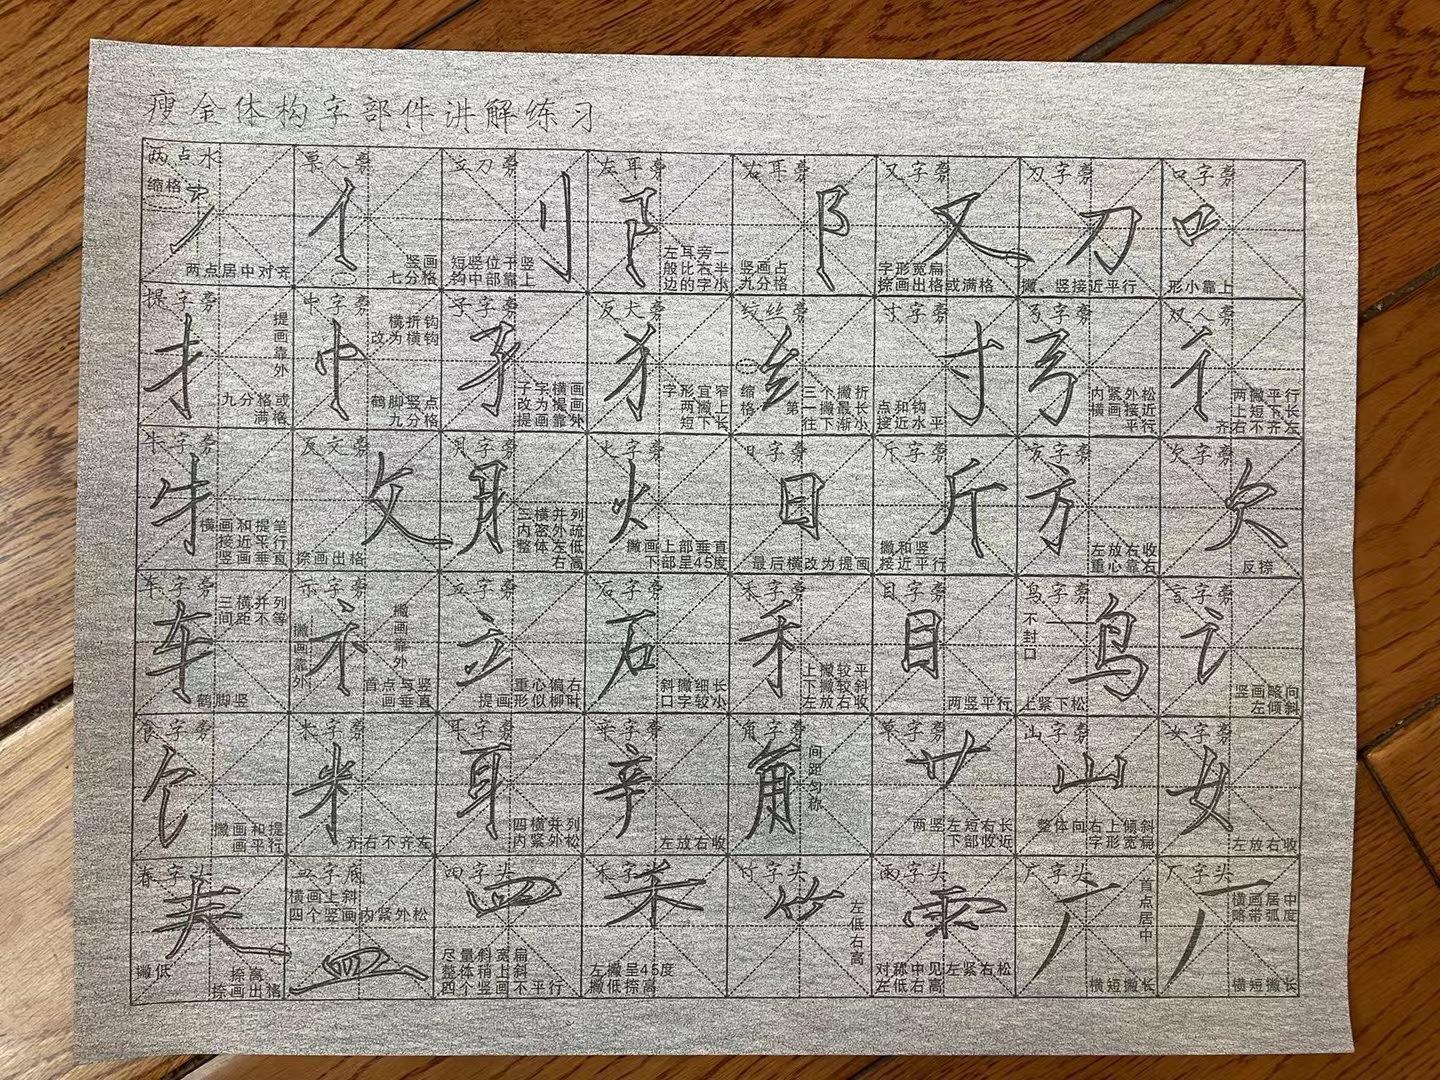 瘦金体构字部件讲解练习
两点水
缩格
两点居中对齐
单人旁
亻
竖画
七分格
立刀旁
刂
短竖位于竖
钩中部靠上
左耳旁
阝
左耳旁一
般比右半
边的字小
右耳旁
阝
竖画占
九分格
又字旁
又
字形宽扁
捺画出格或满格
刀字旁
刀
撇、竖接近平行
口字旁
口
形小靠上
提字旁
扌
提画靠外
九分格或
满格
中字旁
中
横折钩
改为横钩
鹤脚竖点
九分格
子字旁
子
子字横画
改为提画
提画靠外
反犬旁
犭
字形宜窄
两撇上
短下长
绞丝旁
纟
缩格
三个撇折
第一撇最长
往下渐小
寸字旁
寸
点和钩
接近水平
弓字旁
弓
内紧外松
横画接近
平行
双人旁
彳
两撇平行
上短下长
右齐左不齐
牛字旁
牛
横画和提笔
接近平行
竖画垂直
反文旁
攵
捺画出格
月字旁
月
三横并列
内密外疏
整体左低
右高
火字旁
火
撇画上部垂直
下部呈45度
日字旁
日
最后横改为提画
斤字旁
斤
撇和竖
接近平行
方字旁
方
左放右收
重心靠右
欠字旁
欠
反捺
车字旁
车
三横并列
间距不等
鹤脚竖
示字旁
礻
撇画靠外
撇画靠外
首点与竖
画垂直
立字旁
立
重心偏右
提画形似柳叶
石字旁
石
斜撇细长
口字较小
禾字旁
禾
上撇较平
下撇较斜
左放右收
目字旁
目
两竖平行
鸟字旁
鸟
不封口
上紧下松
言字旁
讠
竖画略向
左倾斜
食字旁
饣
撇画和提
画平行
米字旁
米
齐右不齐左
耳字旁
耳
四横并列
内紧外松
辛字旁
辛
左放右收
角字旁
角
间距匀称
草字旁
艹
两竖左短右长
下部收近
山字旁
山
整体向右上倾斜
字形宽扁
女字旁
女
左放右收
春字头
撇低
捺高
捺画出格
皿字底
皿
横画上斜
四个竖画内紧外松
四字头
罒
尽量斜宽扁
整体稍上斜
四个竖画不平行
禾字头
禾
左撇呈45度
撇低捺高
竹字头
竹
左低右高
雨字头
雨
对称中见左紧右松
左低右高
广字头
广
首点居中
横短撇长
厂字头
厂
横画居中
略带弧度
横短撇长